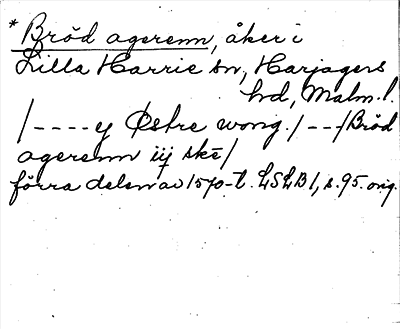 * Bröd agerenn, åker i
Lilla Harrie sn, Harjagers
hd, Malm. l.
/ - - - - y Østre wong. / - - - / Bröd
agerenn iij skē /
förra delen av 1570-t. LSLB 1, s. 95. orig.